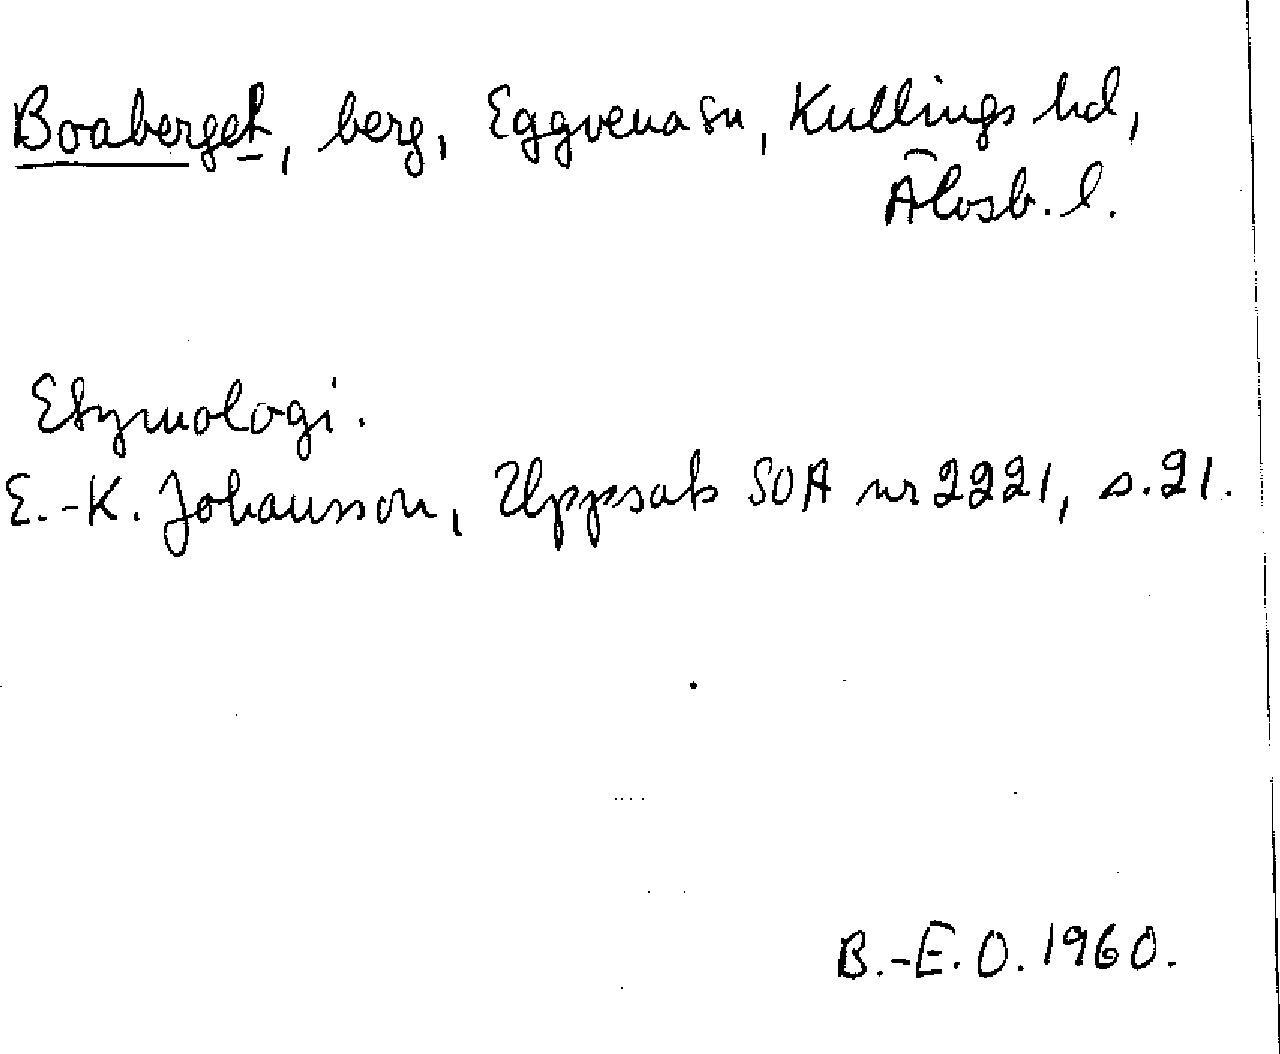 Boaberget, berg, Eggvena sn, Kullings hd,
Älvsb. l.
Etymologi.
E.-K. Johansson, Uppsats SOA nr 2221, s. 21.
B.-E. O. 1960.